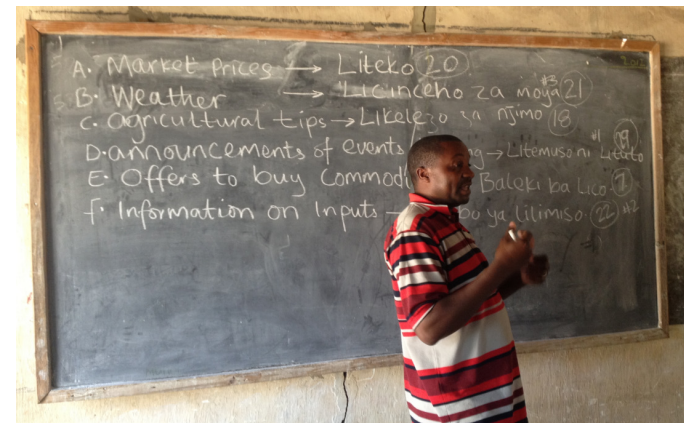 A. Market Prices → Liteko 20
B. Weather → Licinceho za moya #3 21
C. agricultural tips → Likelezo za njimo 18
D. announcements of events → Litemuso ni Litato #1
E. Offers to buy Baleki ba Lico
F. Information on Inputs ya lilimiso. 22 #2